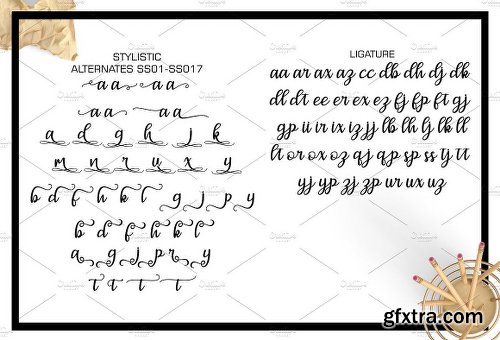 STYLISTIC
ALTERNATES SS01-SS017
aa aa
aa aa
a d g h j k
m n r u x y
b d f h k l g j p y
b d f h k l
a g j p r y
T T T T
LIGATURE
aa ar ax az cc db dh dj dk
dl dt ee er ex ez fj fp ft gj
gp ii ir ix iz jj lb lh lj lk ll
lt or ox oz qj qp sp ss tj tt
yj yp zj zp ur ux uz
gfxtra.com